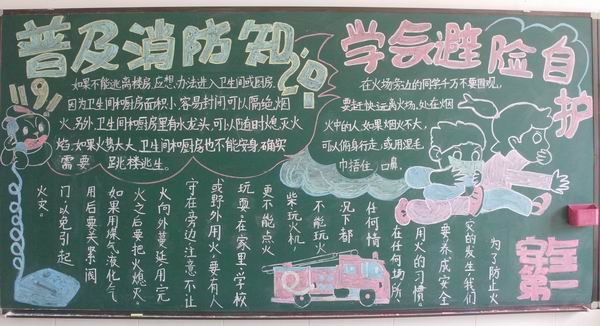 普及消防知识
学会避险自护
119
如果不能逃离楼房,应想办法进入卫生间或厨房,
因为卫生间和厨房面积小,容易封闭可以隔绝烟
火,另外,卫生间和厨房里有水龙头,可以随时熄灭火
焰.如果火势太大,卫生间和厨房也不能安身,确实
需要跳楼逃生。
在火场旁边的同学千万不要围观,
要赶快远离火场.处在烟
火中的人,如果烟火不大,
可以俯身行走,或用湿毛
巾捂住口鼻。
为了防止火
灾的发生,我们
要养成安全
用火的习惯.
在任何场所,
任何情
况下都
不能玩火,
柴玩火机
更不能点火
玩耍,在家里、学校
或野外用火,要有人
守在旁边,注意不让
火向外蔓延,用完
火之后要把火熄灭.
如果用煤气液化气,
用后要关紧阀
门,以免引起
火灾。
安全
第一